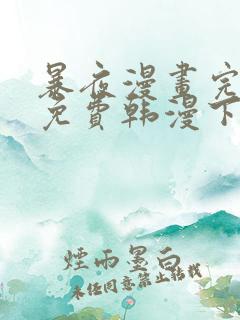 暴夜漫畫完
免費韩漫下
煙雨墨白
未经同意禁止转载